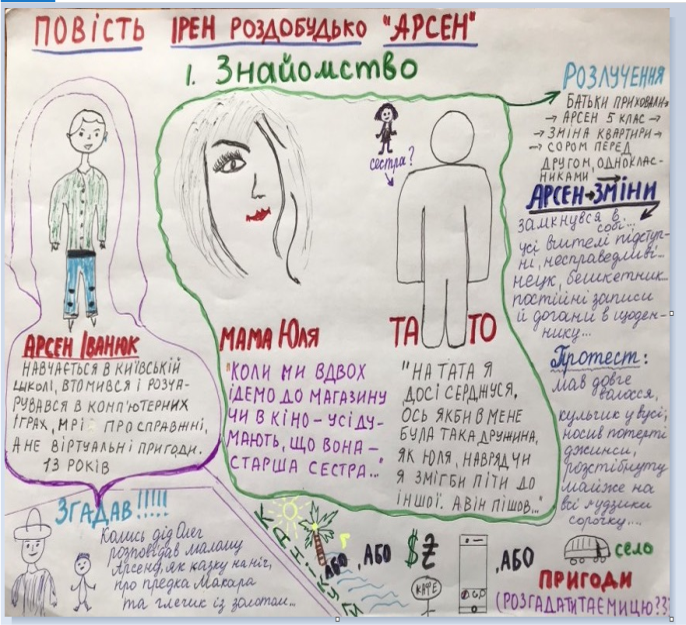 ПОВІСТЬ ІРЕН РОЗДОБУДЬКО "АРСЕН"
1. Знайомство
АРСЕН ІВАНЮК
НАВЧАЄТЬСЯ В КИЇВСЬКІЙ
ШКОЛІ, ВТОМИВСЯ І РОЗЧА-
РУВАВСЯ В КОМП'ЮТЕРНИХ
ІГРАХ, МРІЄ ПРО СПРАВЖНІ,
А НЕ ВІРТУАЛЬНІ ПРИГОДИ.
13 РОКІВ
МАМА ЮЛЯ
"КОЛИ МИ ВДВОХ
ІДЕМО ДО МАГАЗИНУ
ЧИ В КІНО – УСІ ДУ-
МАЮТЬ, ЩО ВОНА –
СТАРША СЕСТРА..."
сестра?
ТАТО
"НА ТАТА Я
ДОСІ СЕРДЖУСЯ,
ОСЬ ЯКБИ В МЕНЕ
БУЛА ТАКА ДРУЖИНА,
ЯК ЮЛЯ, НАВРЯД ЧИ
Я ЗМІГ БИ ПІТИ ДО
ІНШОЇ. А ВІН ПІШОВ..."
РОЗЛУЧЕННЯ
БАТЬКИ ПРИХОВАЛИ →
→ АРСЕН 5 КЛАС →
→ ЗМІНА КВАРТИРИ →
→ СОРОМ ПЕРЕД
ДРУГОМ, ОДНОКЛАС-
НИКАМИ
АРСЕН → ЗМІНИ
замкнувся в
собі...
усі вчителі підступ-
ні, несправедливі...
нецк, бешкетник...
постійні записи
й догани в щоден-
нику...
Протест:
мав довге
волосся,
кульчик у вусі,
носив потерті
джинси,
розстібнуту
майже на
всі ґудзики
сорочку...
ЗГАДАВ!!!!!
Колись дід Олег
розповідав малому
Арсену, як казку на ніч,
про предка Макара
та глечик із золотом...
КАНІКУЛИ
АБО, АБО $ ₴, АБО
КАФЕ
село
ПРИГОДИ
(РОЗГАДАТИ ТАЄМНИЦЮ?)